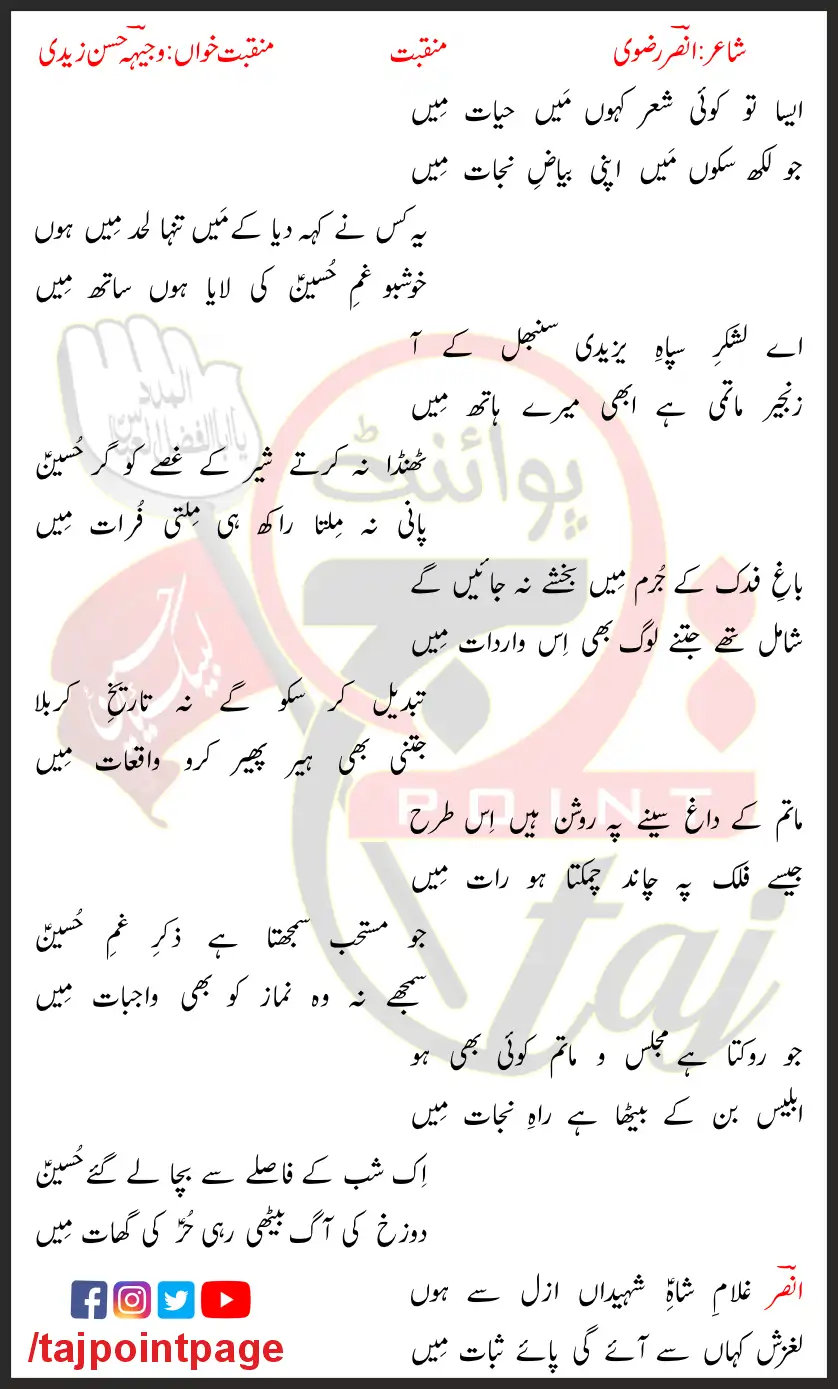 شاعر: انصؔر رضوی منقبت منقبت خواں: وجیہہؔ حسن زیدی
ایسا تو کوئی شعر کہوں مَیں حیات مِیں
جو لکھ سکوں مَیں اپنی بیاضِ نجات مِیں
یہ کس نے کہہ دیا کے مَیں تنہا لحد مِیں ہوں
خوشبو غمِ حُسینؑ کی لایا ہوں ساتھ مِیں
اے لشکرِ سپاہِ یزیدی سنبھل کے آ
زنجیر ماتمی ہے ابھی میرے ہاتھ مِیں
ٹھنڈا نہ کرتے شیر کے غصے کو گر حُسینؑ
پانی نہ مِلتا راکھ ہی مِلتی فُرات مِیں
باغِ فدک کے جُرم مِیں بخشے نہ جائیں گے
شامل تھے جتنے لوگ بھی اِس واردات مِیں
تبدیل کر سکو گے نہ تاریخِ کربلا
جتنی بھی ہیر پھیر کرو واقعات مِیں
ماتم کے داغ سینے پہ روشن ہیں اِس طرح
جیسے فلک پہ چاند چمکتا ہو رات مِیں
جو مستحب سمجھتا ہے ذکرِ غمِ حُسینؑ
سمجھے نہ وہ نماز کو بھی واجبات مِیں
جو روکتا ہے مجلس و ماتم کوئی بھی ہو
ابلیس بن کے بیٹھا ہے راہِ نجات مِیں
اِک شب کے فاصلے سے بچا لے گئے حُسینؑ
دوزخ کی آگ بیٹھی رہی حُرؑ کی گھات مِیں
انصؔر غلامِ شاہِؑ شہیداں ازل سے ہوں
لغزش کہاں سے آئے گی پائے ثبات مِیں
/tajpointpage
پوائنٹ
تاج
POINT
taj
لبیک یا حسینؑ